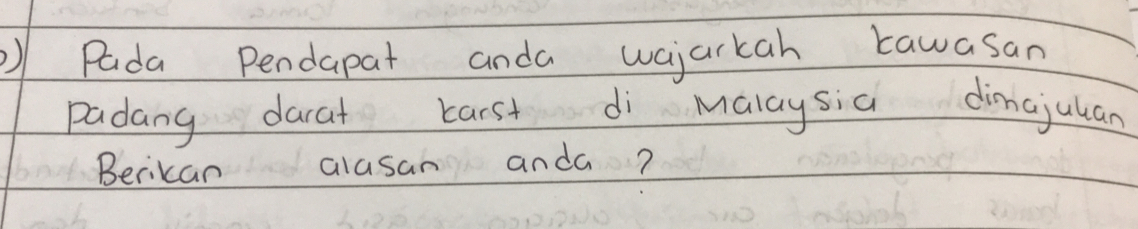 b) Pada Pendapat anda wajarkah kawasan
Padang darat karst di Malaysia dimajukan
Berikan alasan anda ?